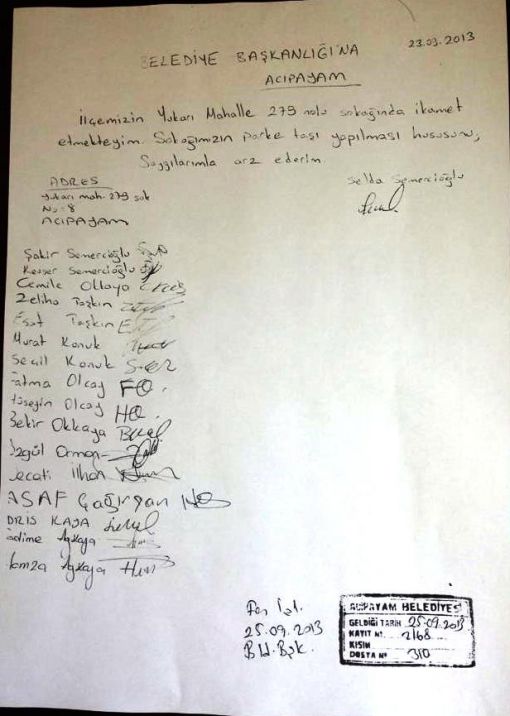 23.09.2013
BELEDİYE BAŞKANLIĞI'NA
ACIPAYAM
İlçemizin Yukarı Mahalle 279 nolu sokağında ikamet
etmekteyim. Sokağımızın parke taşı yapılması hususunu;
Saygılarımla arz ederim.
Selda Semercioğlu
ADRES
Yukarı mah. 279 sok
No: 8
ACIPAYAM
Şakir Semercioğlu
Kevser Semercioğlu
Cemile
Zeliha Taşkın
Esat Taşkın
Murat Konuk
Seçil Konuk
Fatma Olcay FO.
Hüseyin Olcay HO.
Bekir Okkaya
Özgül Orman
Necati İlhan
ASAF Çağırgan
İDRİS KAYA
Akkaya
Hamza Akkaya
Fen İşl.
25.09.2013
Bld. Bşk.
ACIPAYAM BELEDİYESİ
GELDİĞİ TARİH 25-09-2013
KAYIT Nº 2168
KISIM
DOSYA Nº 310